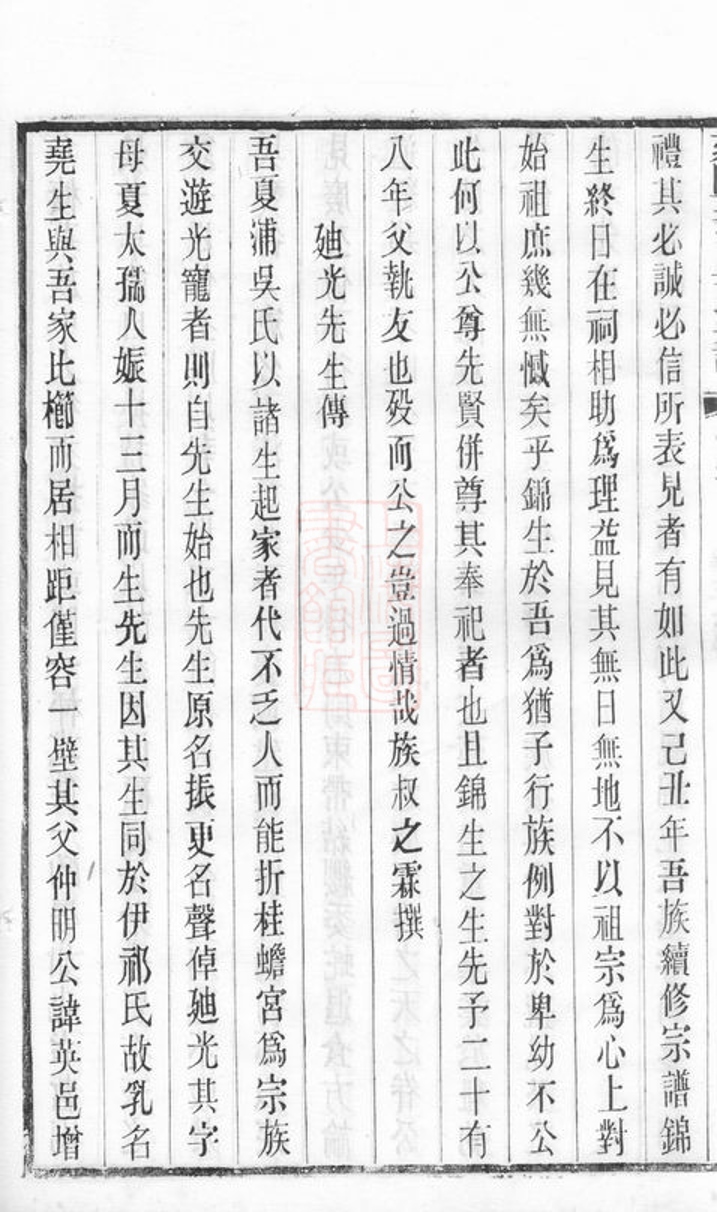 禮其必誠必信所表見者有如此又己丑年吾族續修宗譜錦
生終日在祠相助爲理益見其無日無地不以祖宗爲心上對
始祖庶幾無憾矣乎錦生於吾爲猶子行族例對於卑幼不公
此何以公尊先賢併尊其奉祀者也且錦生之生先予二十有
八年父執友也歿而公之豈過情哉族叔之霖撰
廸光先生傳
吾夏浦吳氏以諸生起家者代不乏人而能折桂蟾宮爲宗族
交遊光寵者則自先生始也先生原名振更名聲倬廸光其字
母夏太孺人娠十三月而生先生因其生同於伊祁氏故乳名
堯生與吾家比櫛而居相距僅容一壁其父仲明公諱英邑增